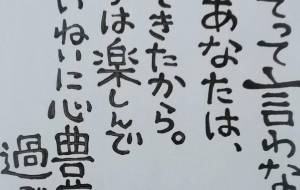 てって言わな
あなたは、
できたから。
は楽しんで
いねいに心豊
過